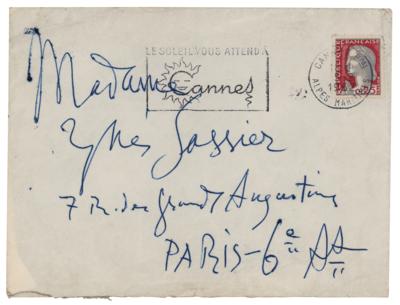 LE SOLEIL VOUS ATTEND À
Cannes
RÉPUBLIQUE FRANÇAISE
0,25
ALPES MARITIMES
Madame
Yves Sassier
7 R. des Grands Augustins
PARIS-6e